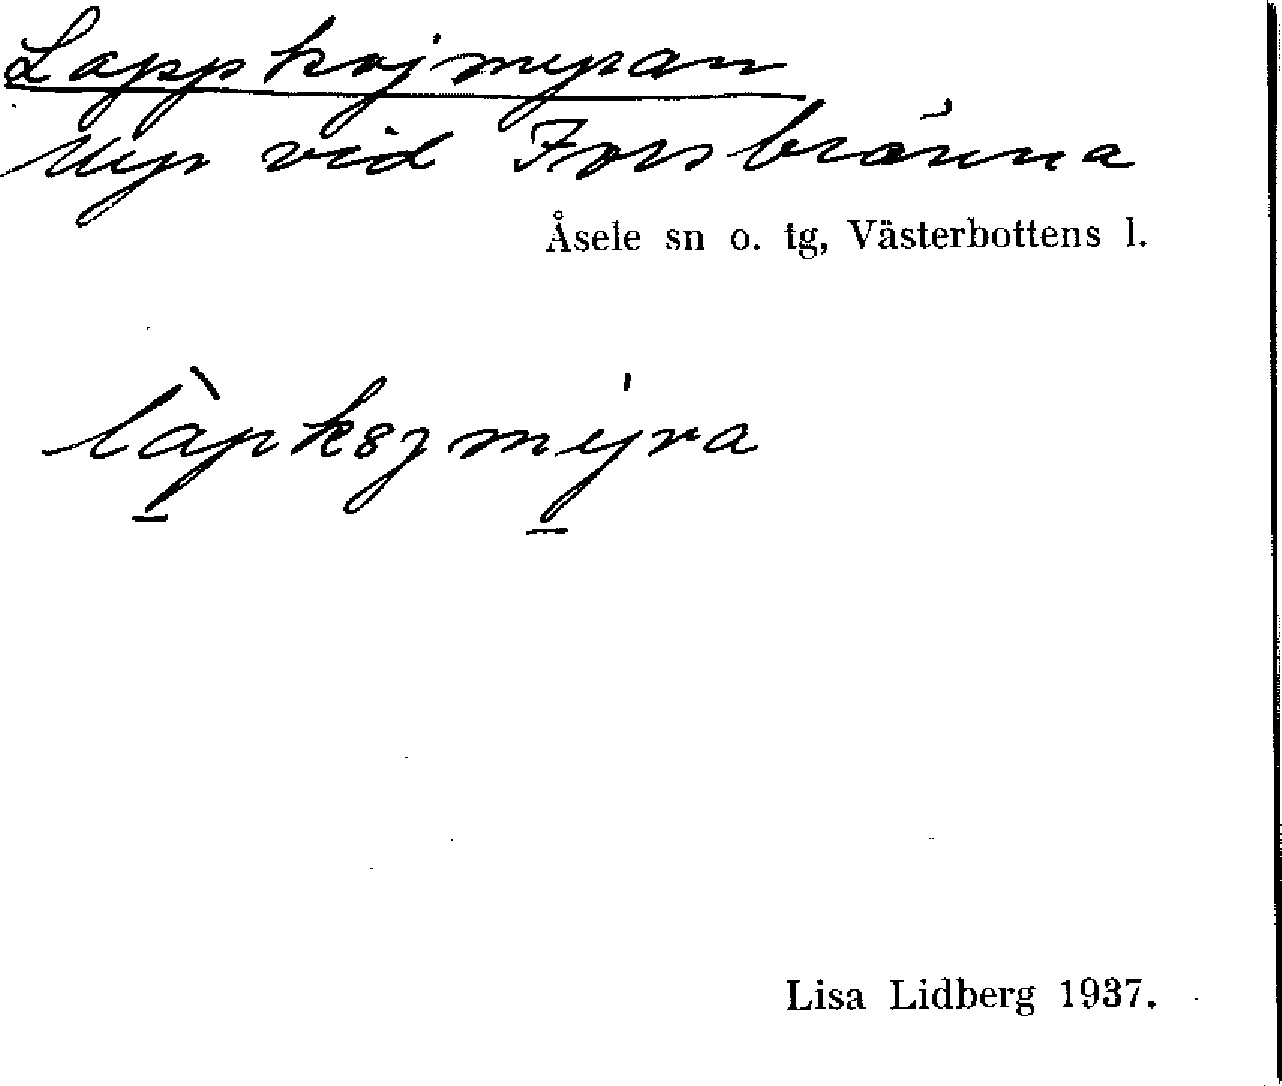 Lappkojmyran
Myr vid Forsbränna
Åsele sn o. tg, Västerbottens l.
Lisa Lidberg 1937.